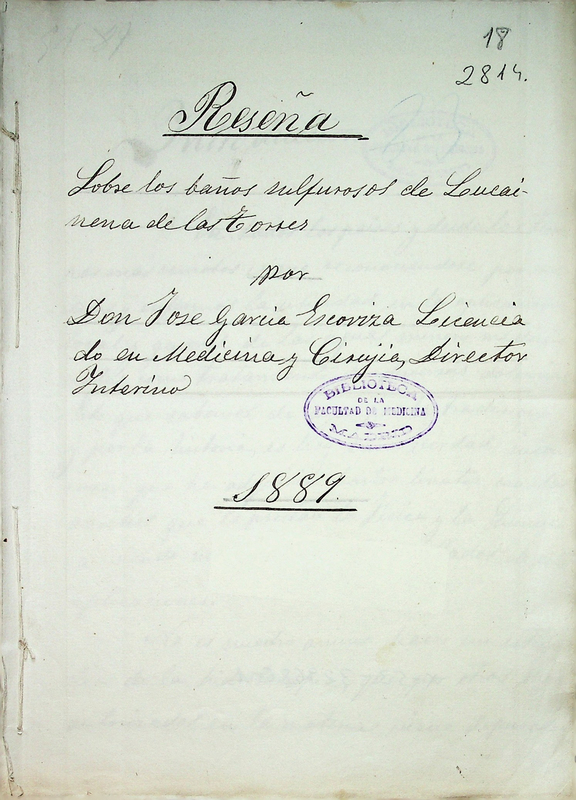 18
2814.
Reseña
Sobre los baños sulfurosos de Lucai-
nena de las Torres
por
Don Jose Garcia Escoviza Licencia
do en Medicina y Cirujia, Director
Interino
BIBLIOTECA
DE LA
FACULTAD DE MEDICINA
MADRID
1889.